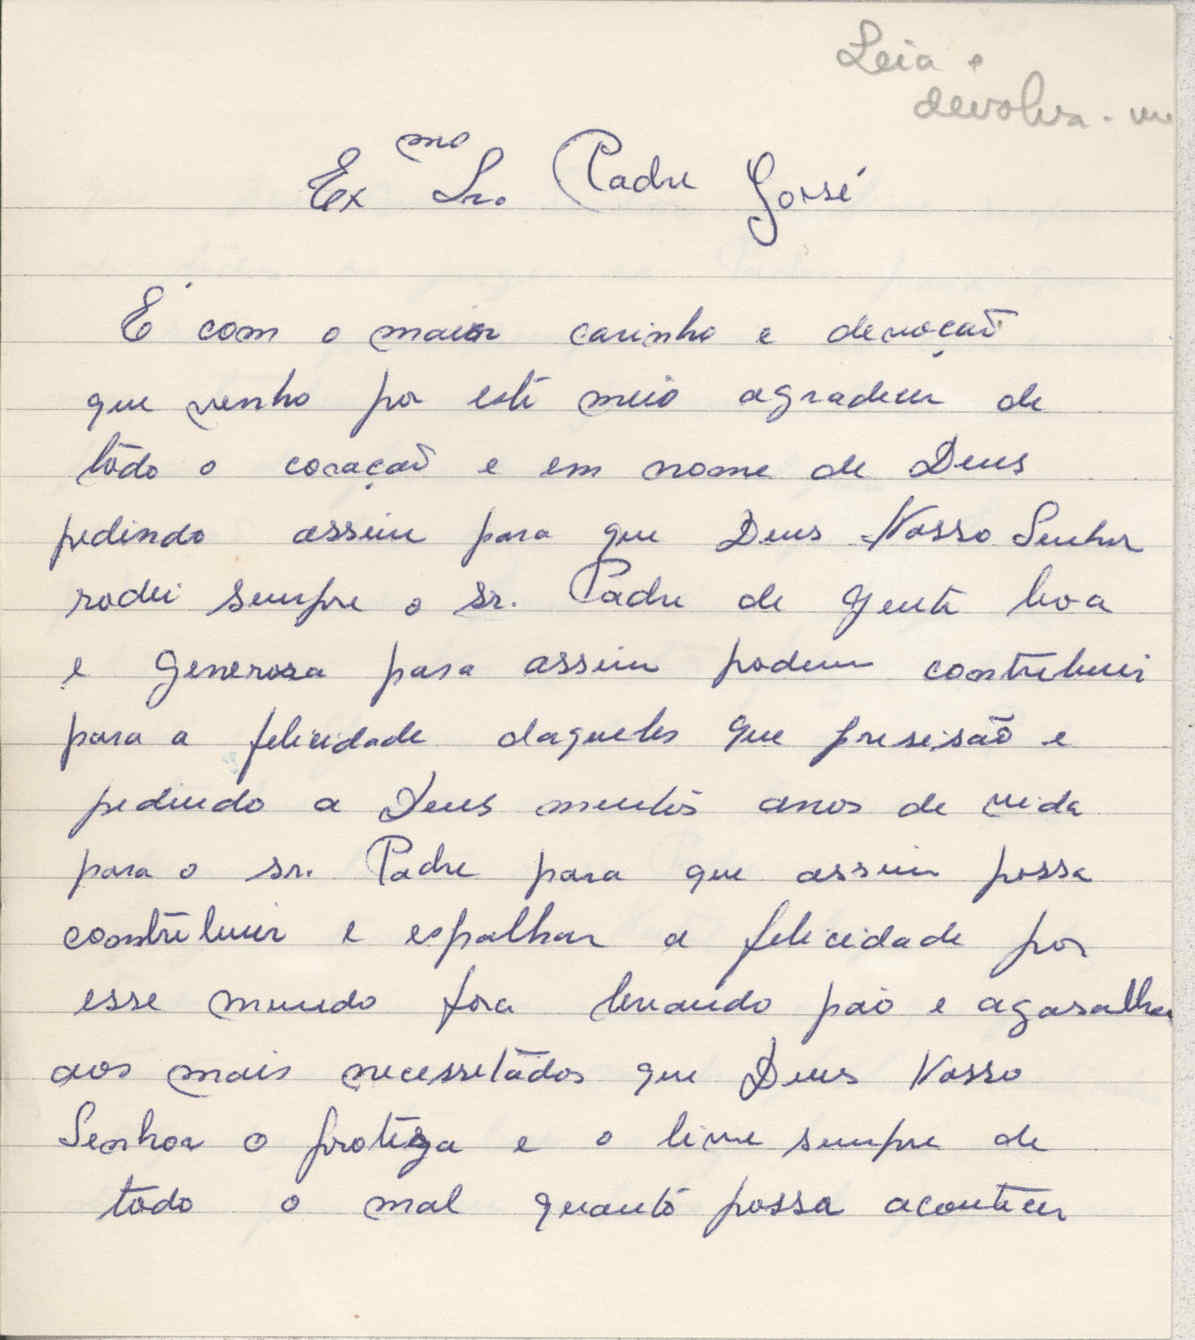 Leia e
devolva-me
Exmo Sr. Padre Jorsé
É com o maior carinho e devoção
que venho por este meio agradecer de
todo o coração e em nome de Deus
pedindo assim para que Deus Nosso Senhor
rodei sempre o sr. Padre de gente boa
e generosa para assim poderem contribuir
para a felicidade daqueles que presisão e
pedindo a Deus muitos anos de vida
para o sr. Padre para que assim possa
contribuir e espalhar a felicidade por
esse mundo fora levando pão e agasalho
aos mais necessitados que Deus Nosso
Senhor o protega e o livre sempre de
todo o mal quanto possa acontecer